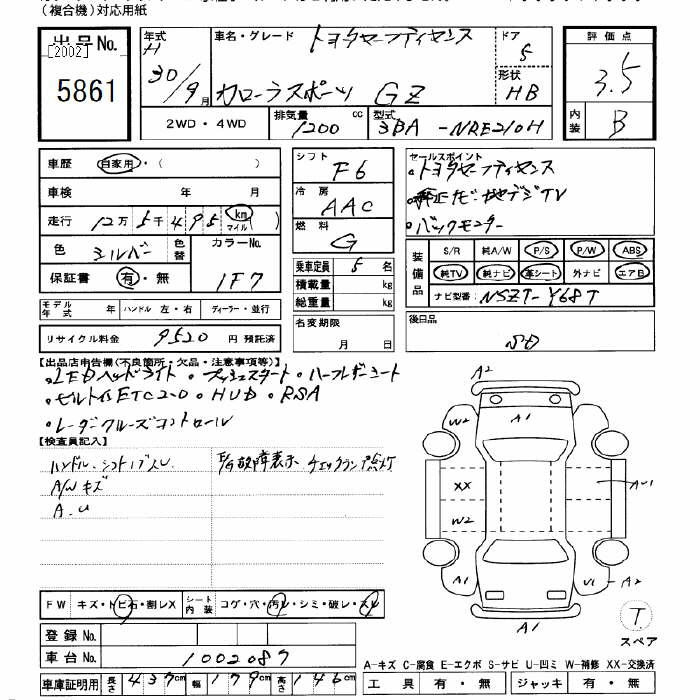 （複合機）対応用紙
出品No.
[2002]
5861
年式
H
30/9月
車名・グレード
トヨタセーフティセンス
カローラスポーツ GZ
ドア
5
形状
HB
評価点
3.5
内装
B
2WD・4WD
排気量
1200
cc
型式
3BA-NRE210H
車歴
自家用・( )
車検 年 月
走行 12万5千495 km マイル ( )
色 シルバー 色替 カラーNo. 1F7
保証書 有・無
モデル年式 年 ハンドル 左・右 ディーラー・並行
リサイクル料金 9520 円 預託済
シフト F6
冷房 AAC
燃料 G
乗車定員 5 名
積載量 kg
総重量 kg
名変期限
月 日
セールスポイント
・トヨタセーフティセンス
・純正ナビ・地デジTV
・バックモニター
装備品
S/R 純A/W P/S P/W ABS
純TV 純ナビ 革シート 外ナビ エアB
ナビ型番 NSZT-Y68T
後日品
【出品店申告欄(不良箇所・欠品・注意事項等)】
・LEDヘッドライト ・プッシュスタート ・ハーフレザーシート
・ビルトインETC2.0 ・HUD ・RSA
・レーダークルーズコントロール
【検査員記入】
ハンドル・シフトノブスレ
A/Wキズ
A.U
E/G故障表示 チェックランプ点灯
A2
W2
A1
XX
W2
AU1
A1
U1-A2
A1
T
スペア
FW キズ・トビ石・割レX シート内装 コゲ・穴・汚レ・シミ・破レ・スレ
登録No.
車台No. 1002087
車庫証明用 長さ 437cm 幅 179cm 高さ 146cm
A-キズ C-腐食 E-エクボ S-サビ U-凹ミ W-補修 XX-交換済
工具 有・無 ジャッキ 有・無